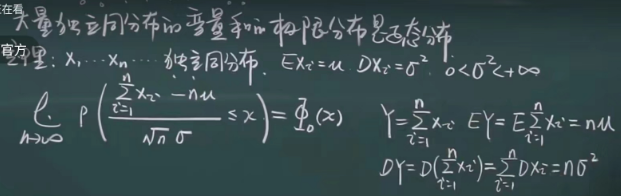 在看
大量独立同分布的变量和的极限分布是正态分布
官方
定理: x₁...xₙ... 独立同分布. Exᵢ=μ Dxᵢ=σ² 0<σ²<+∞
lim n→∞ P( (∑ᵢ₌₁ⁿ xᵢ - nμ) / (√n σ) ≤ x ) = Φ₀(x)
Y=∑ᵢ₌₁ⁿ xᵢ EY=E∑ᵢ₌₁ⁿ xᵢ=nμ
DY=D(∑ᵢ₌₁ⁿ xᵢ)=∑ᵢ₌₁ⁿ Dxᵢ=nσ²